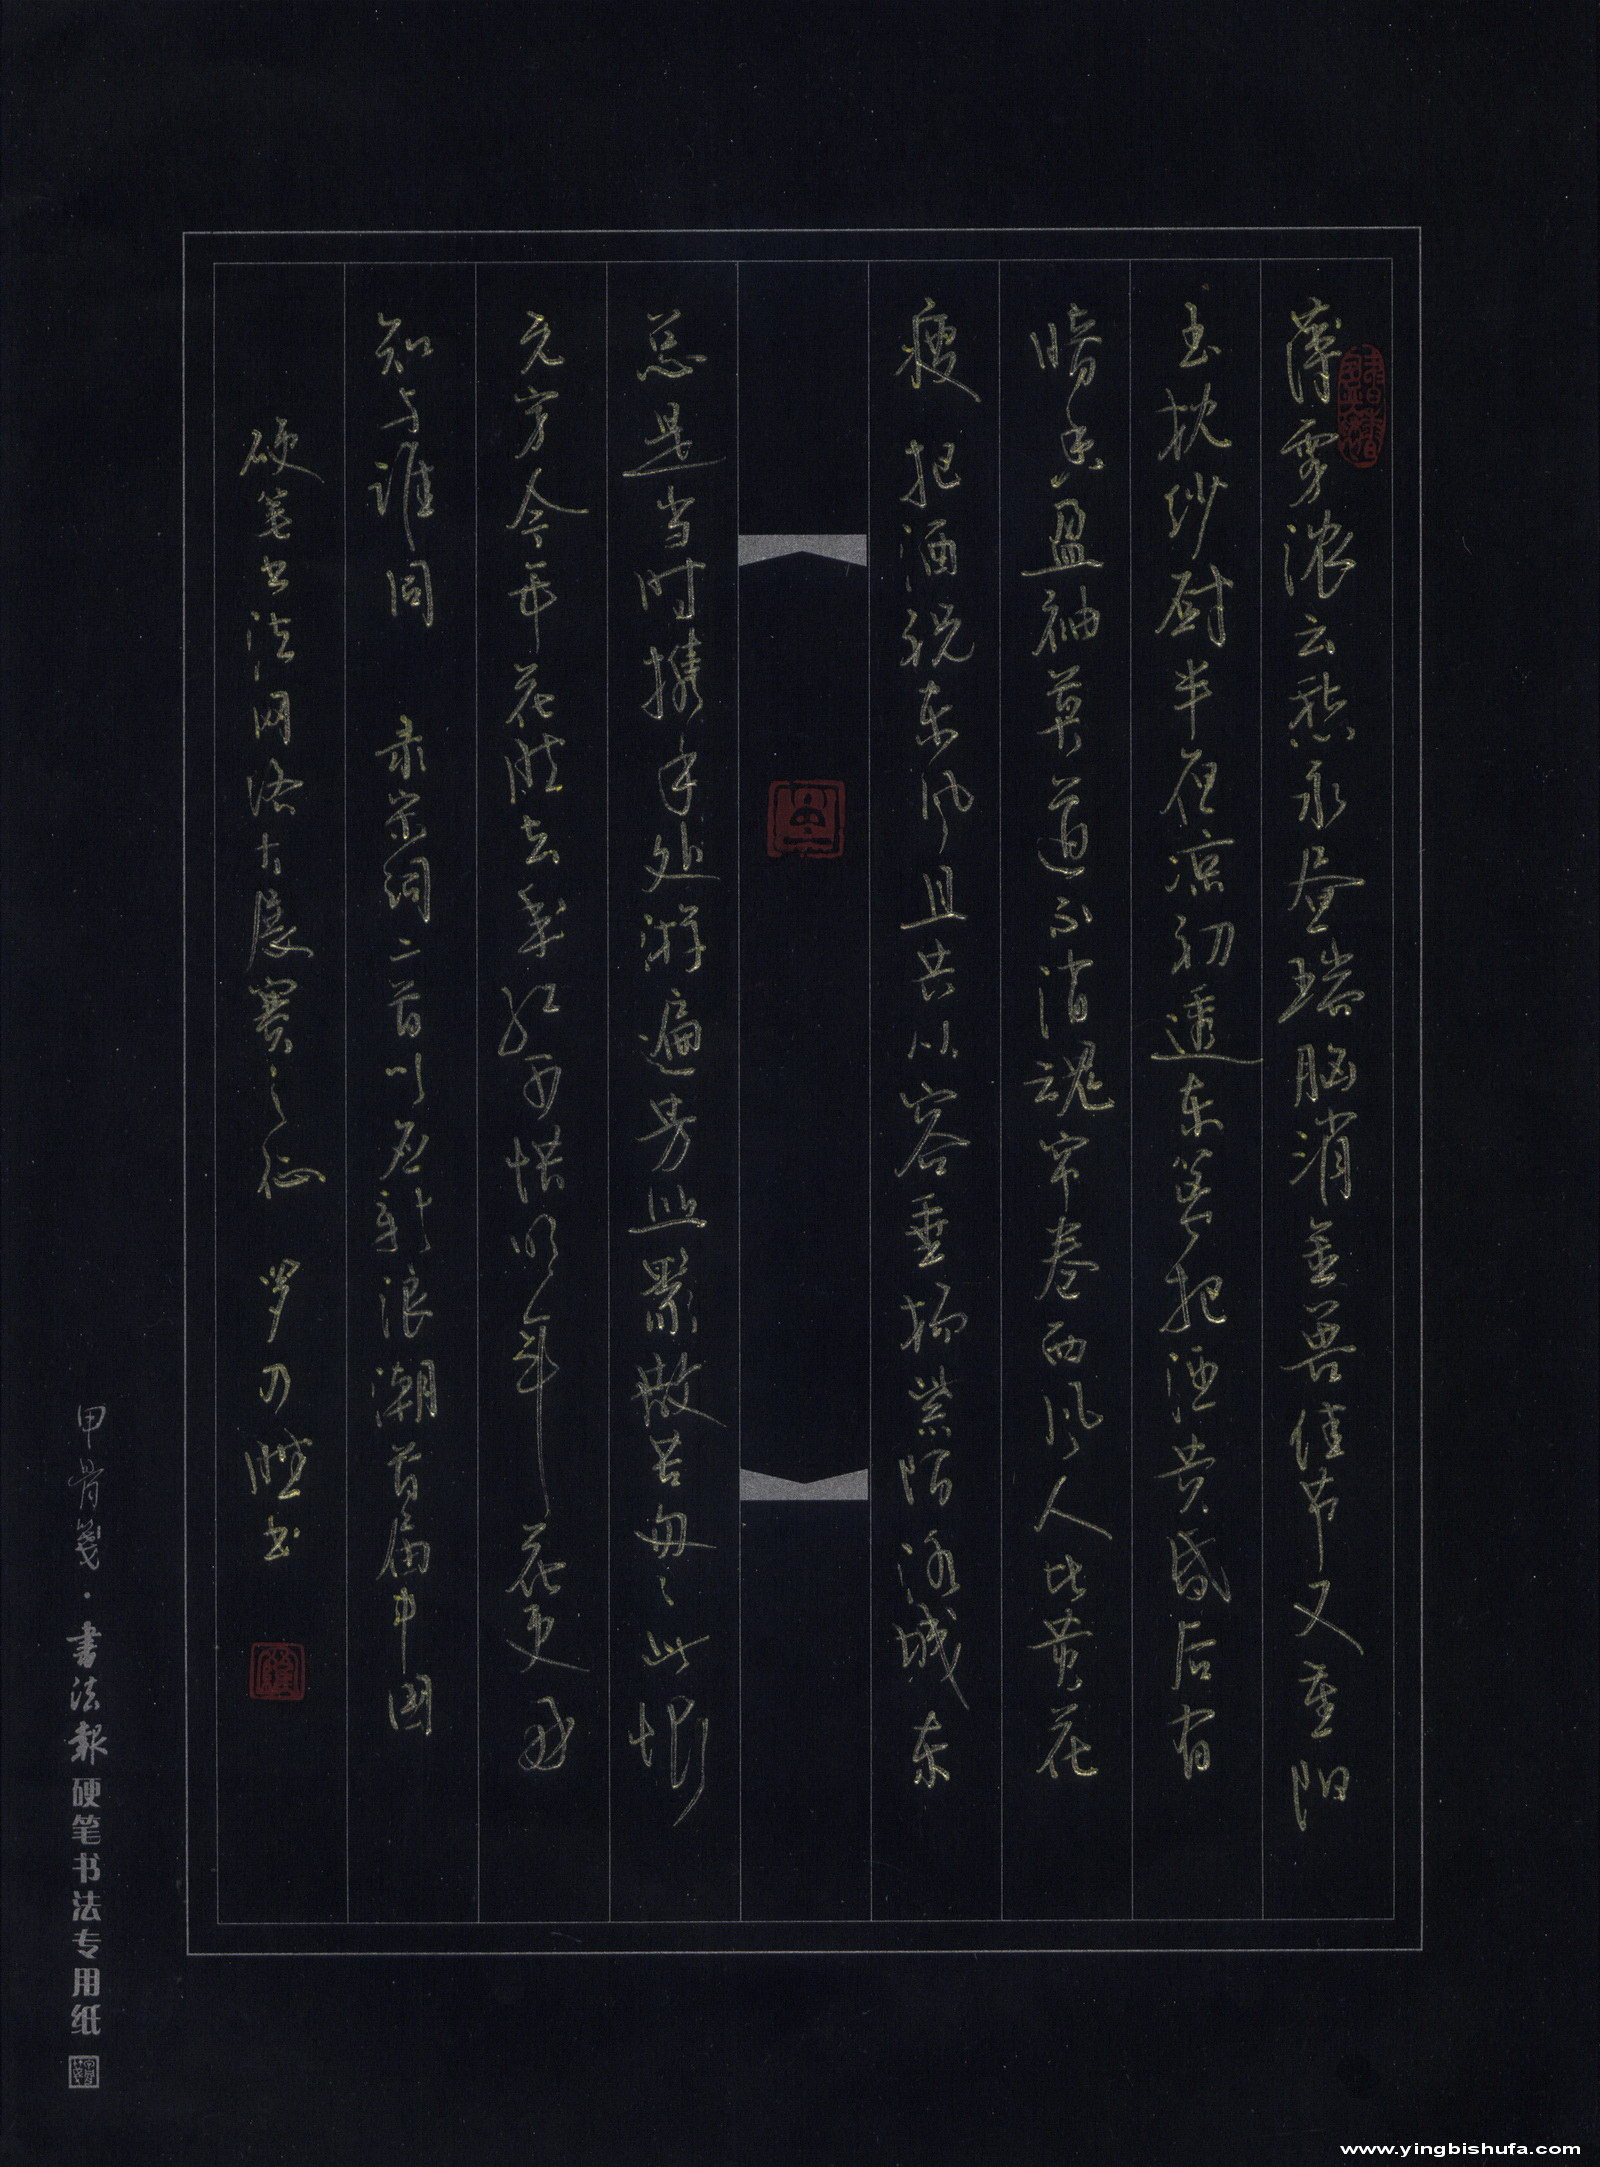 薄雾浓云愁永昼瑞脑消金兽佳节又重阳
玉枕纱厨半夜凉初透东篱把酒黄昏后有
暗香盈袖莫道不消魂帘卷西风人比黄花
瘦 把酒祝东风且共从容垂杨紫陌洛城东
总是当时携手处游遍芳丛聚散苦匆々此恨
无穷今年花胜去年红可惜明年花更好
知与谁同 录宋词二首以应新浪潮首届中国
硬笔书法网络大展赛之征 罗 书
甲骨笺·书法报硬笔书法专用纸
www.yingbishufa.com